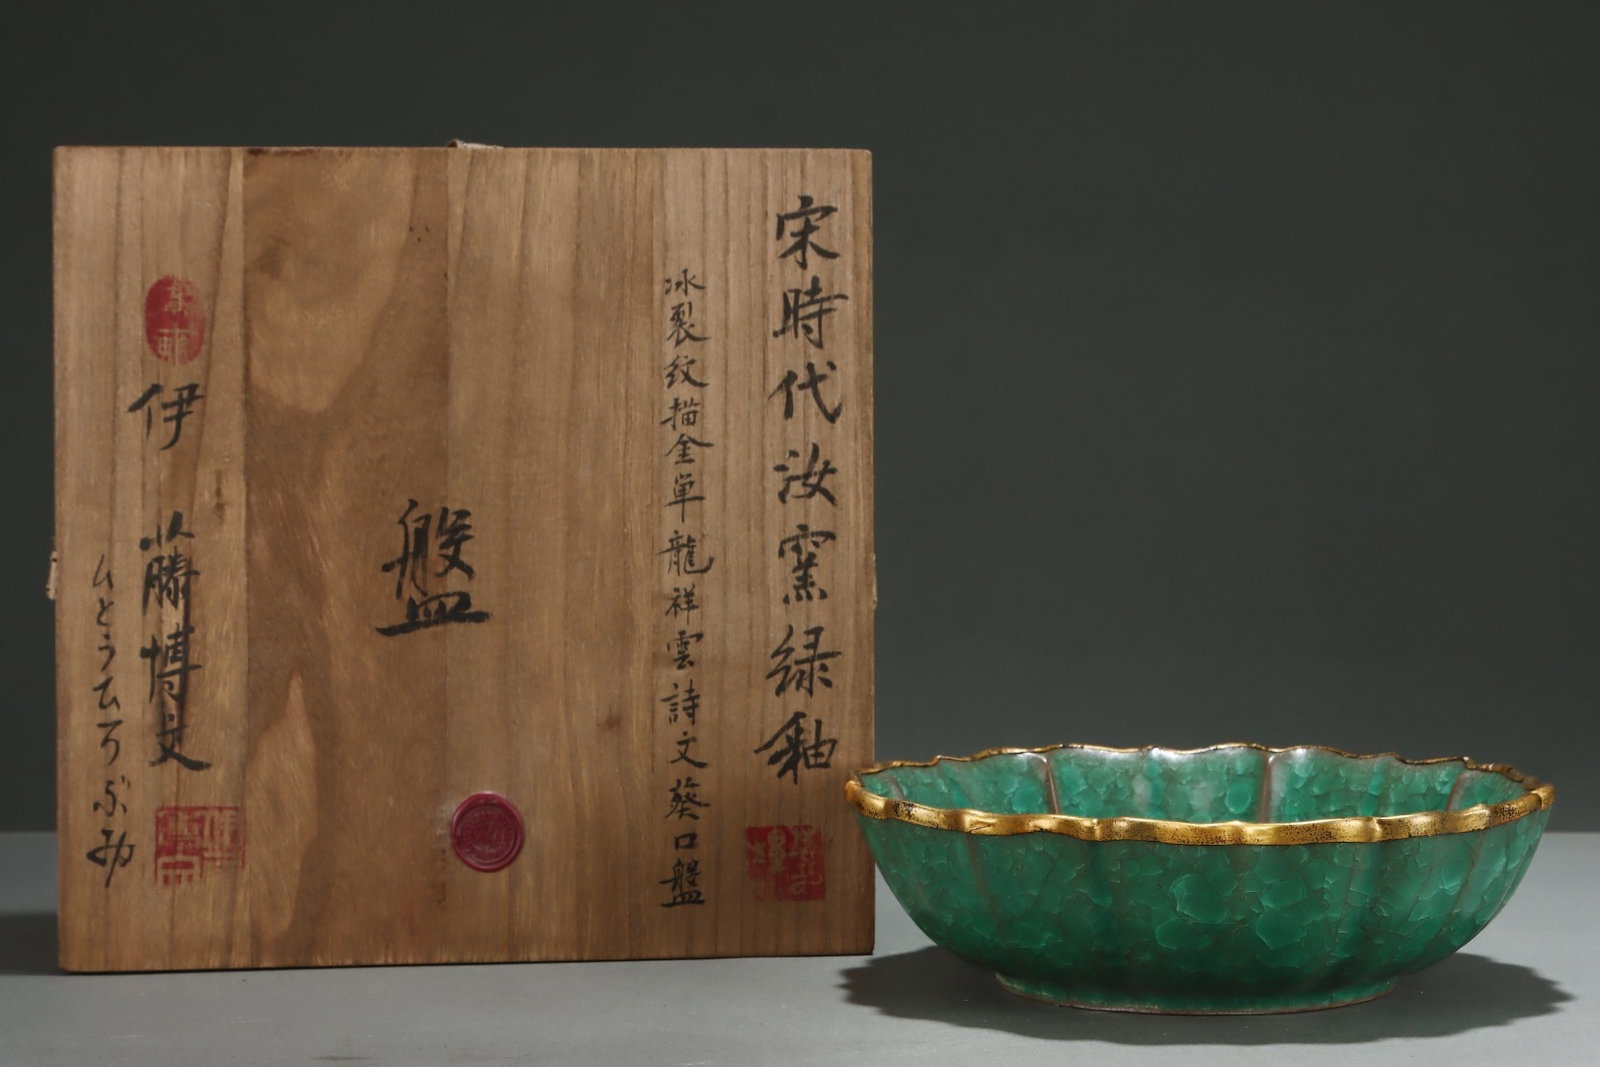 宋時代汝窯緑釉
冰裂纹描金単龍祥雲詩文葵口盤
盤
伊藤博文
いとうひろぶみ